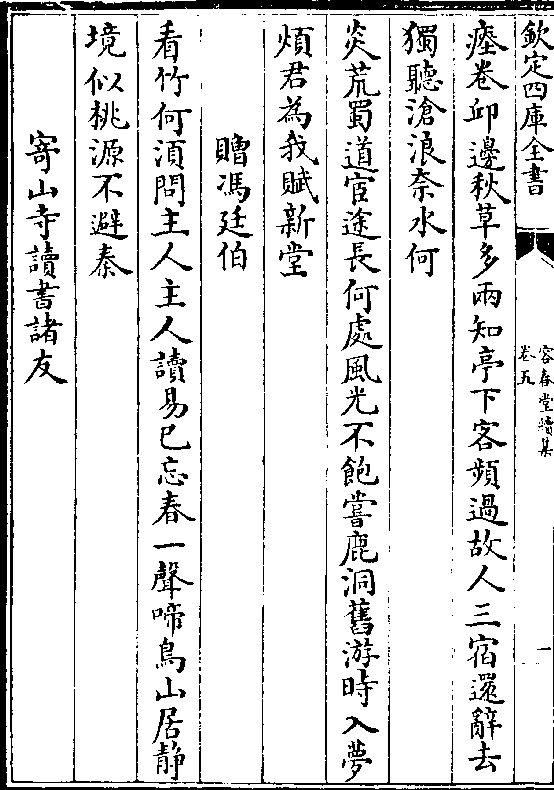 欽定四庫全書
容春堂續集
卷五
一
瘞卷邱邊秋草多兩知亭下客頻過故人三宿還辭去
獨聽滄浪奈水何
炎荒蜀道宦途長何處風光不飽嘗鹿洞舊游時入夢
煩君為我賦新堂
贈馮廷伯
看竹何須問主人主人讀易已忘春一聲啼鳥山居靜
境似桃源不避秦
寄山寺讀書諸友